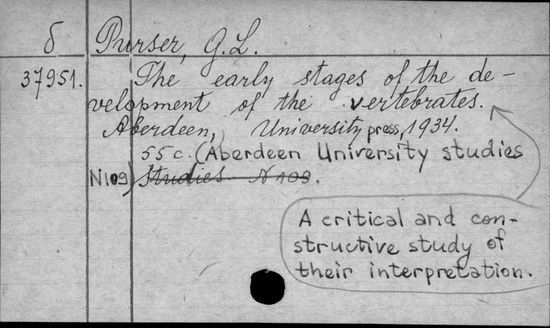 б Purser, G.L.
37951. The early stages of the de-
velopment of the vertebrates.
Aberdeen, University press, 1934.
55 c. (Aberdeen University studies
N109) Studies N 109.
A critical and con-
structive study of
their interpretation.